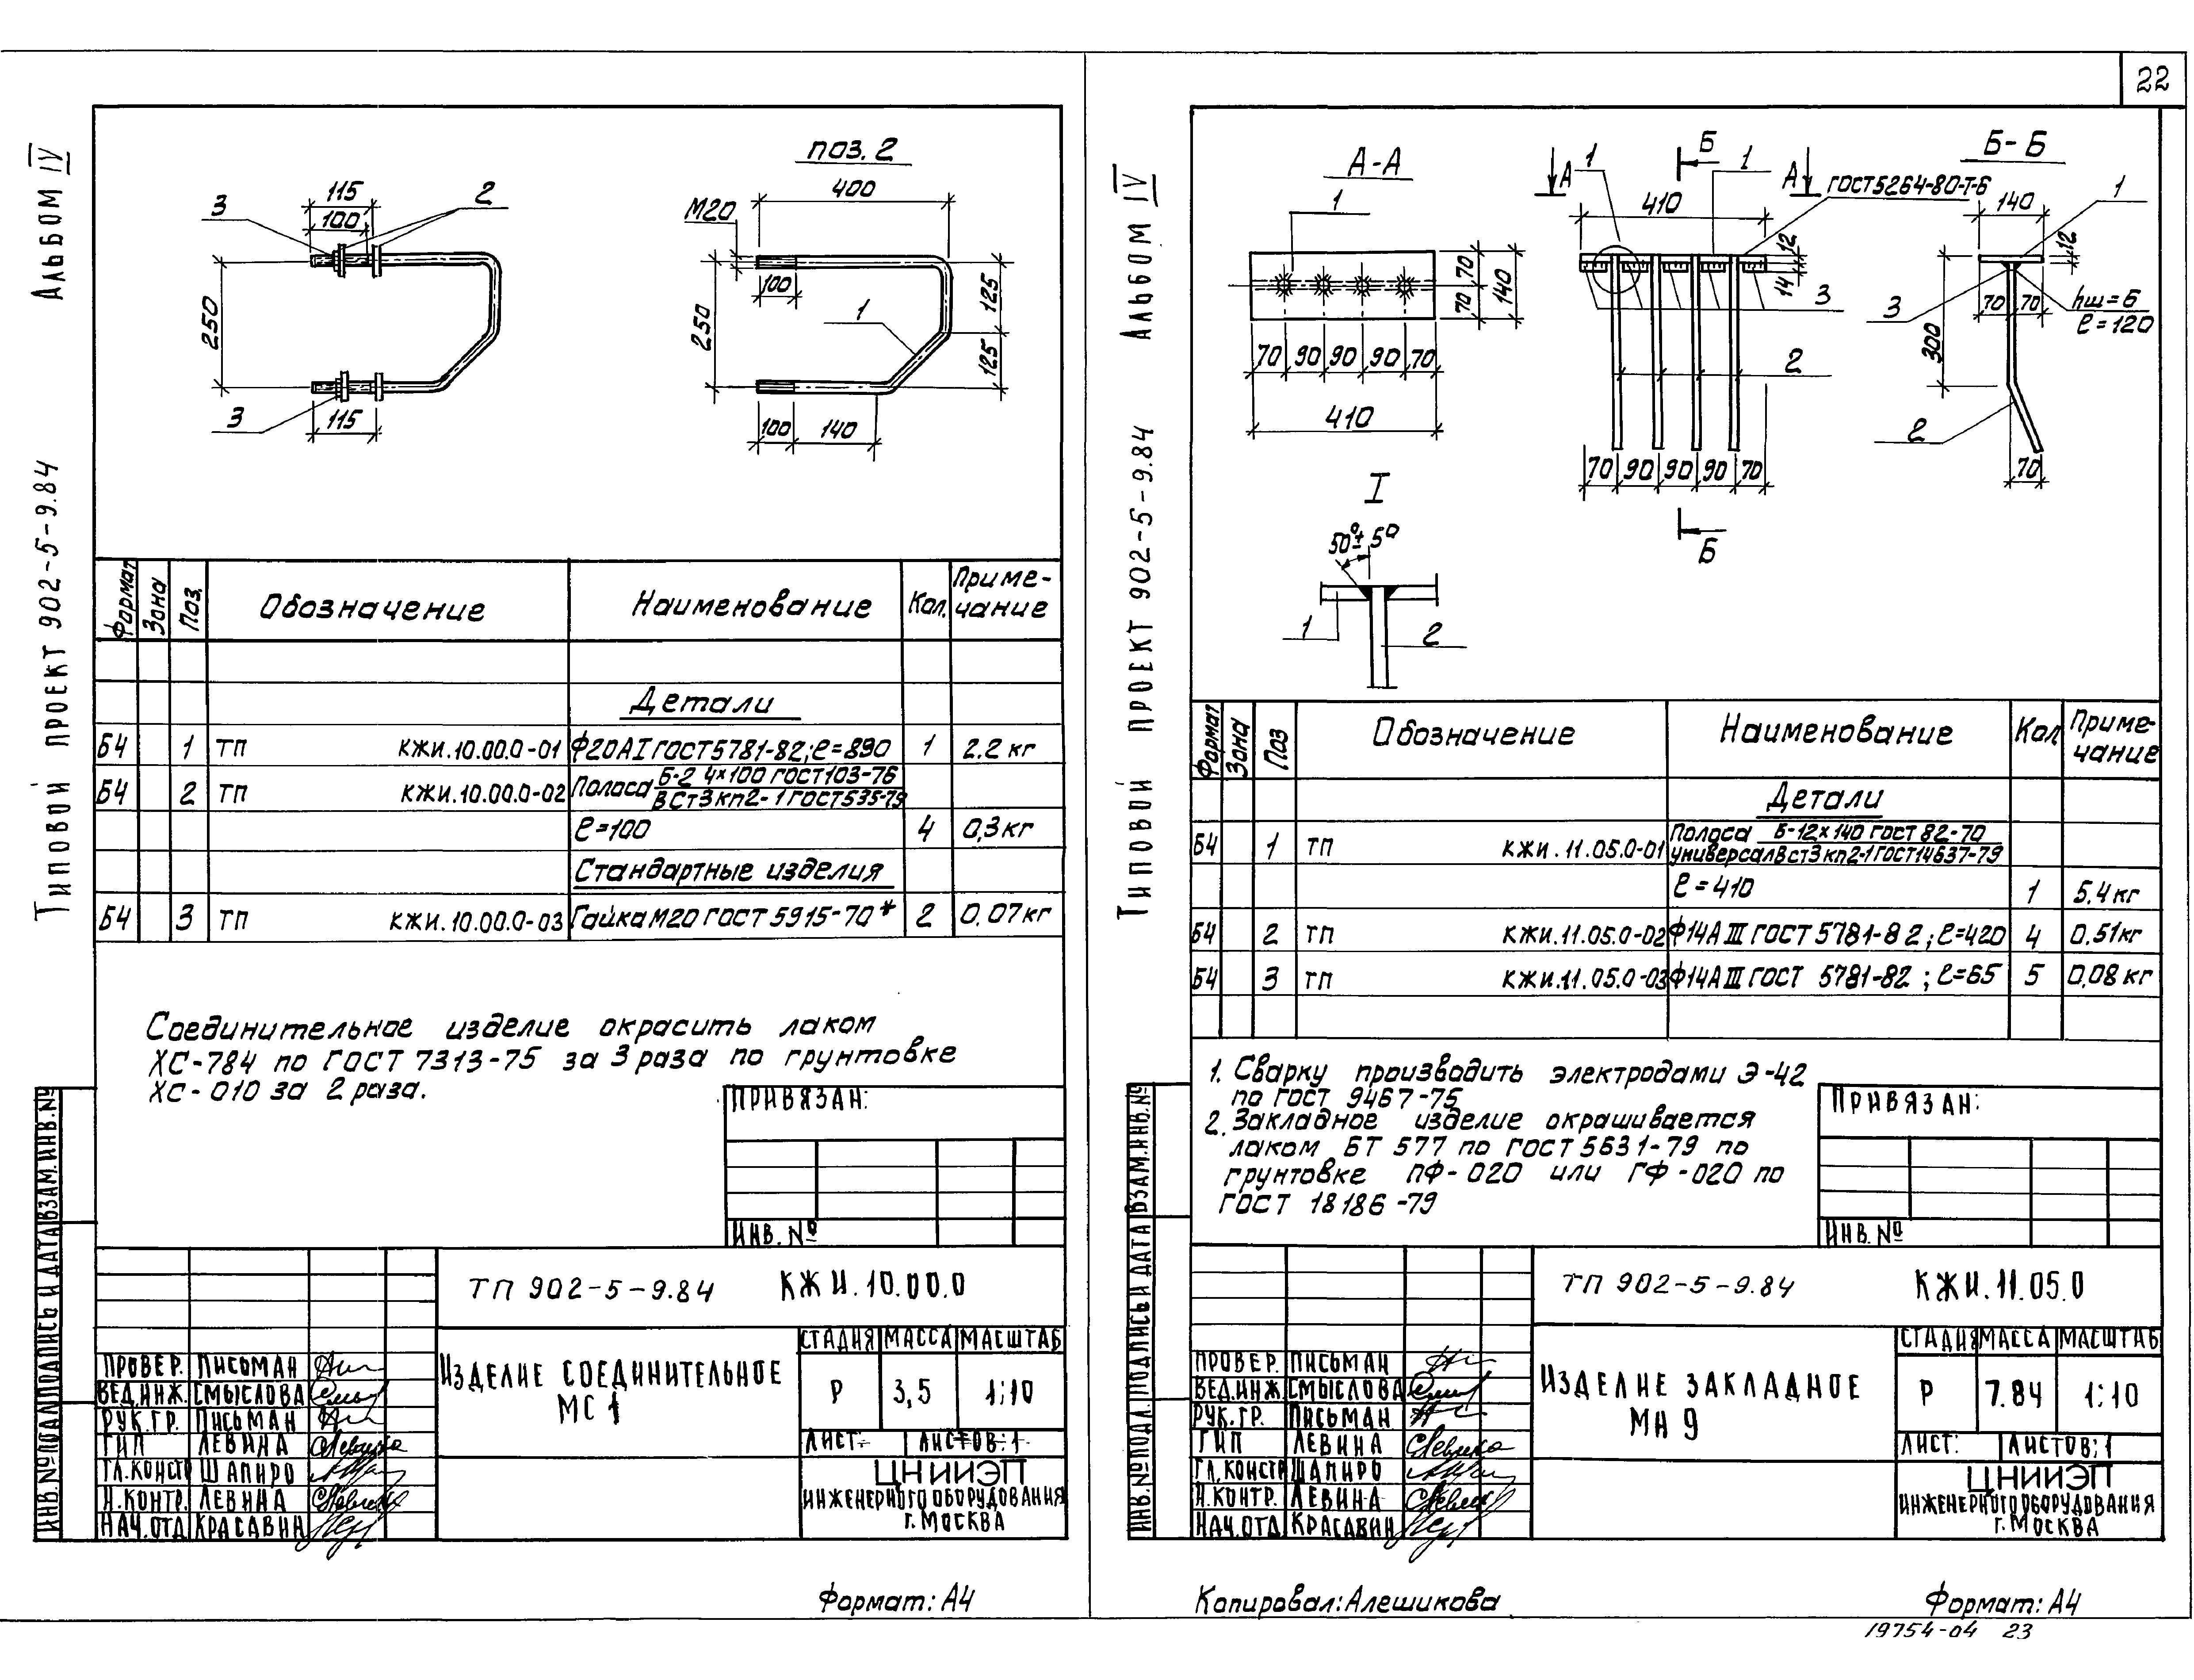 22
Типовой проект 902-5-9.84 Альбом IV
поз. 2
3
115
100
2
250
3
115
М20
400
100
250
1
125
125
100
140
Формат
Зона
Поз.
Обозначение
Наименование
Кол.
Приме-
чание
Детали
Б4 1 ТП КЖИ.10.00.0-01 Ф20АI ГОСТ 5781-82; ℓ=890 1 2.2 кг
Б4 2 ТП КЖИ.10.00.0-02 Полоса Б-2 4×100 ГОСТ 103-76
ВСт3кп2-1 ГОСТ 535-79
ℓ=100 4 0,3 кг
Стандартные изделия
Б4 3 ТП КЖИ.10.00.0-03 Гайка М20 ГОСТ 5915-70* 2 0.07 кг
Соединительное изделие окрасить лаком
ХС-784 по ГОСТ 7313-75 за 3 раза по грунтовке
ХС-010 за 2 раза.
Привязан:
Инв. №
ТП 902-5-9.84 КЖИ.10.00.0
Изделие соединительное
МС 1
Стадия Масса Масштаб
Р 3,5 1:10
Лист: Листов: 1
ЦНИИЭП
инженерного оборудования
г. Москва
Провер. Письман
Вед.инж. Смыслова
Рук.гр. Письман
ГИП Левина
Гл.констр Шапиро
Н.контр. Левина
Нач.отд Красавин
Инв.№подл. Подпись и дата Взам.инв.№
Формат: А4
Типовой проект 902-5-9.84 Альбом IV
А-А
1
70
70
140
70 90 90 90 70
410
А
1
Б
1
А
ГОСТ 5264-80-Т-6
410
12
14
3
2
70 90 90 90 70
Б
Б-Б
140
1
12
3
70 70
hш=6
ℓ=120
300
2
70
I
50°±5°
1
2
Формат
Зона
Поз
Обозначение
Наименование
Кол
Приме-
чание
Детали
Б4 1 ТП КЖИ.11.05.0-01 Полоса Б-12×140 ГОСТ 82-70
универсал ВСт3кп2-1 ГОСТ 14637-79
ℓ=410 1 5.4 кг
Б4 2 ТП КЖИ.11.05.0-02 Ф14АIII ГОСТ 5781-82; ℓ=420 4 0.51кг
Б4 3 ТП КЖИ.11.05.0-03 Ф14АIII ГОСТ 5781-82; ℓ=65 5 0,08 кг
1. Сварку производить электродами Э-42
по ГОСТ 9467-75
2. Закладное изделие окрашивается
лаком БТ 577 по ГОСТ 5631-79 по
грунтовке ПФ-020 или ГФ-020 по
ГОСТ 18186-79
Привязан:
Инв. №
ТП 902-5-9.84 КЖИ.11.05.0
Изделие закладное
МН 9
Стадия Масса Масштаб
Р 7.84 1:10
Лист: Листов: 1
ЦНИИЭП
инженерного оборудования
г. Москва
Провер. Письман
Вед.инж. Смыслова
Рук.гр. Письман
ГИП Левина
Гл.констр Шапиро
Н.контр. Левина
Нач.отд Красавин
Инв.№подл. Подпись и дата Взам.инв.№
Копировал: Алешикова
Формат: А4
19754-04 23